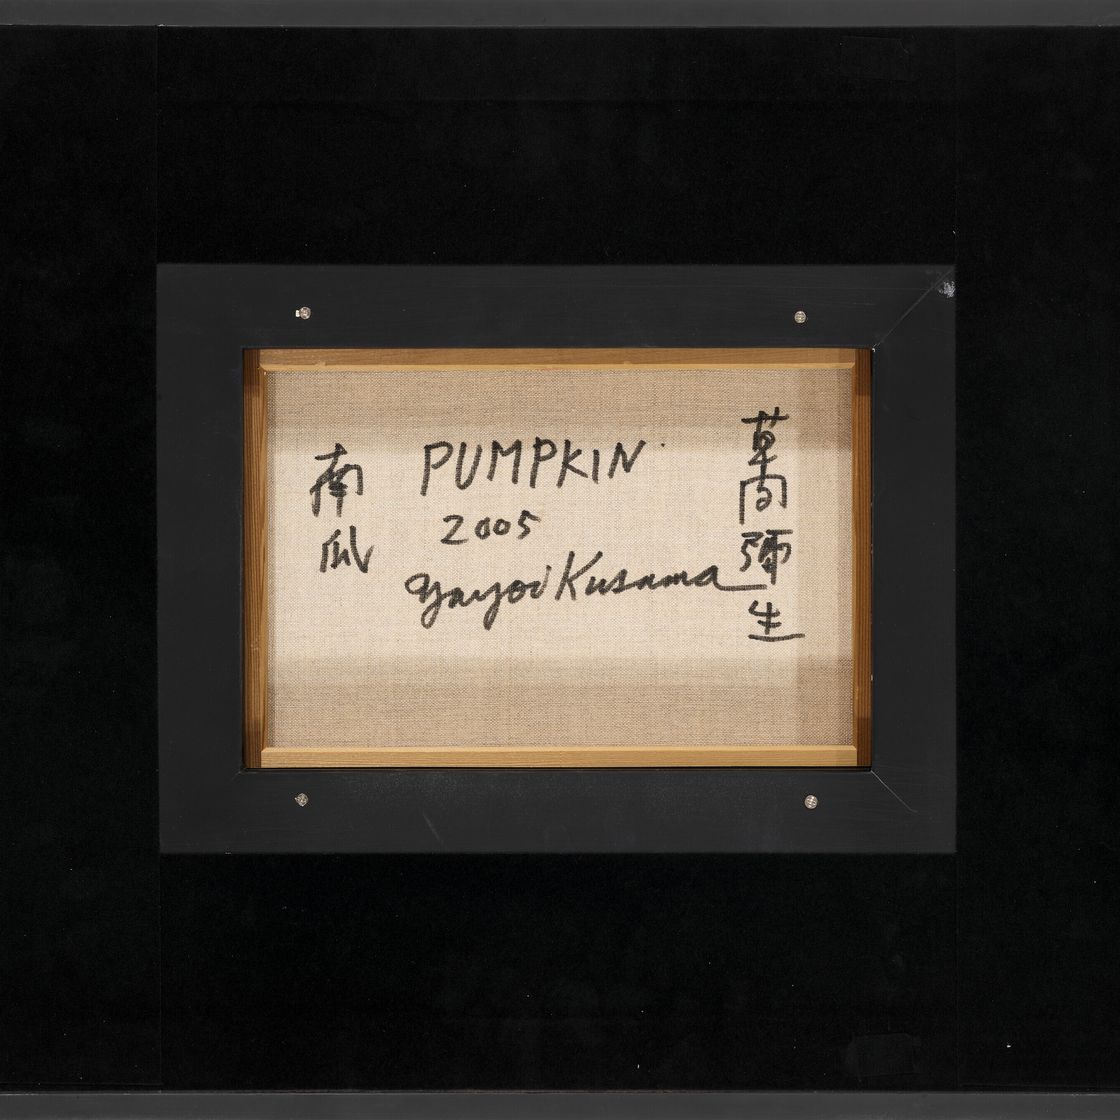 南瓜
PUMPKIN
2005
Yayoi Kusama
草間彌生